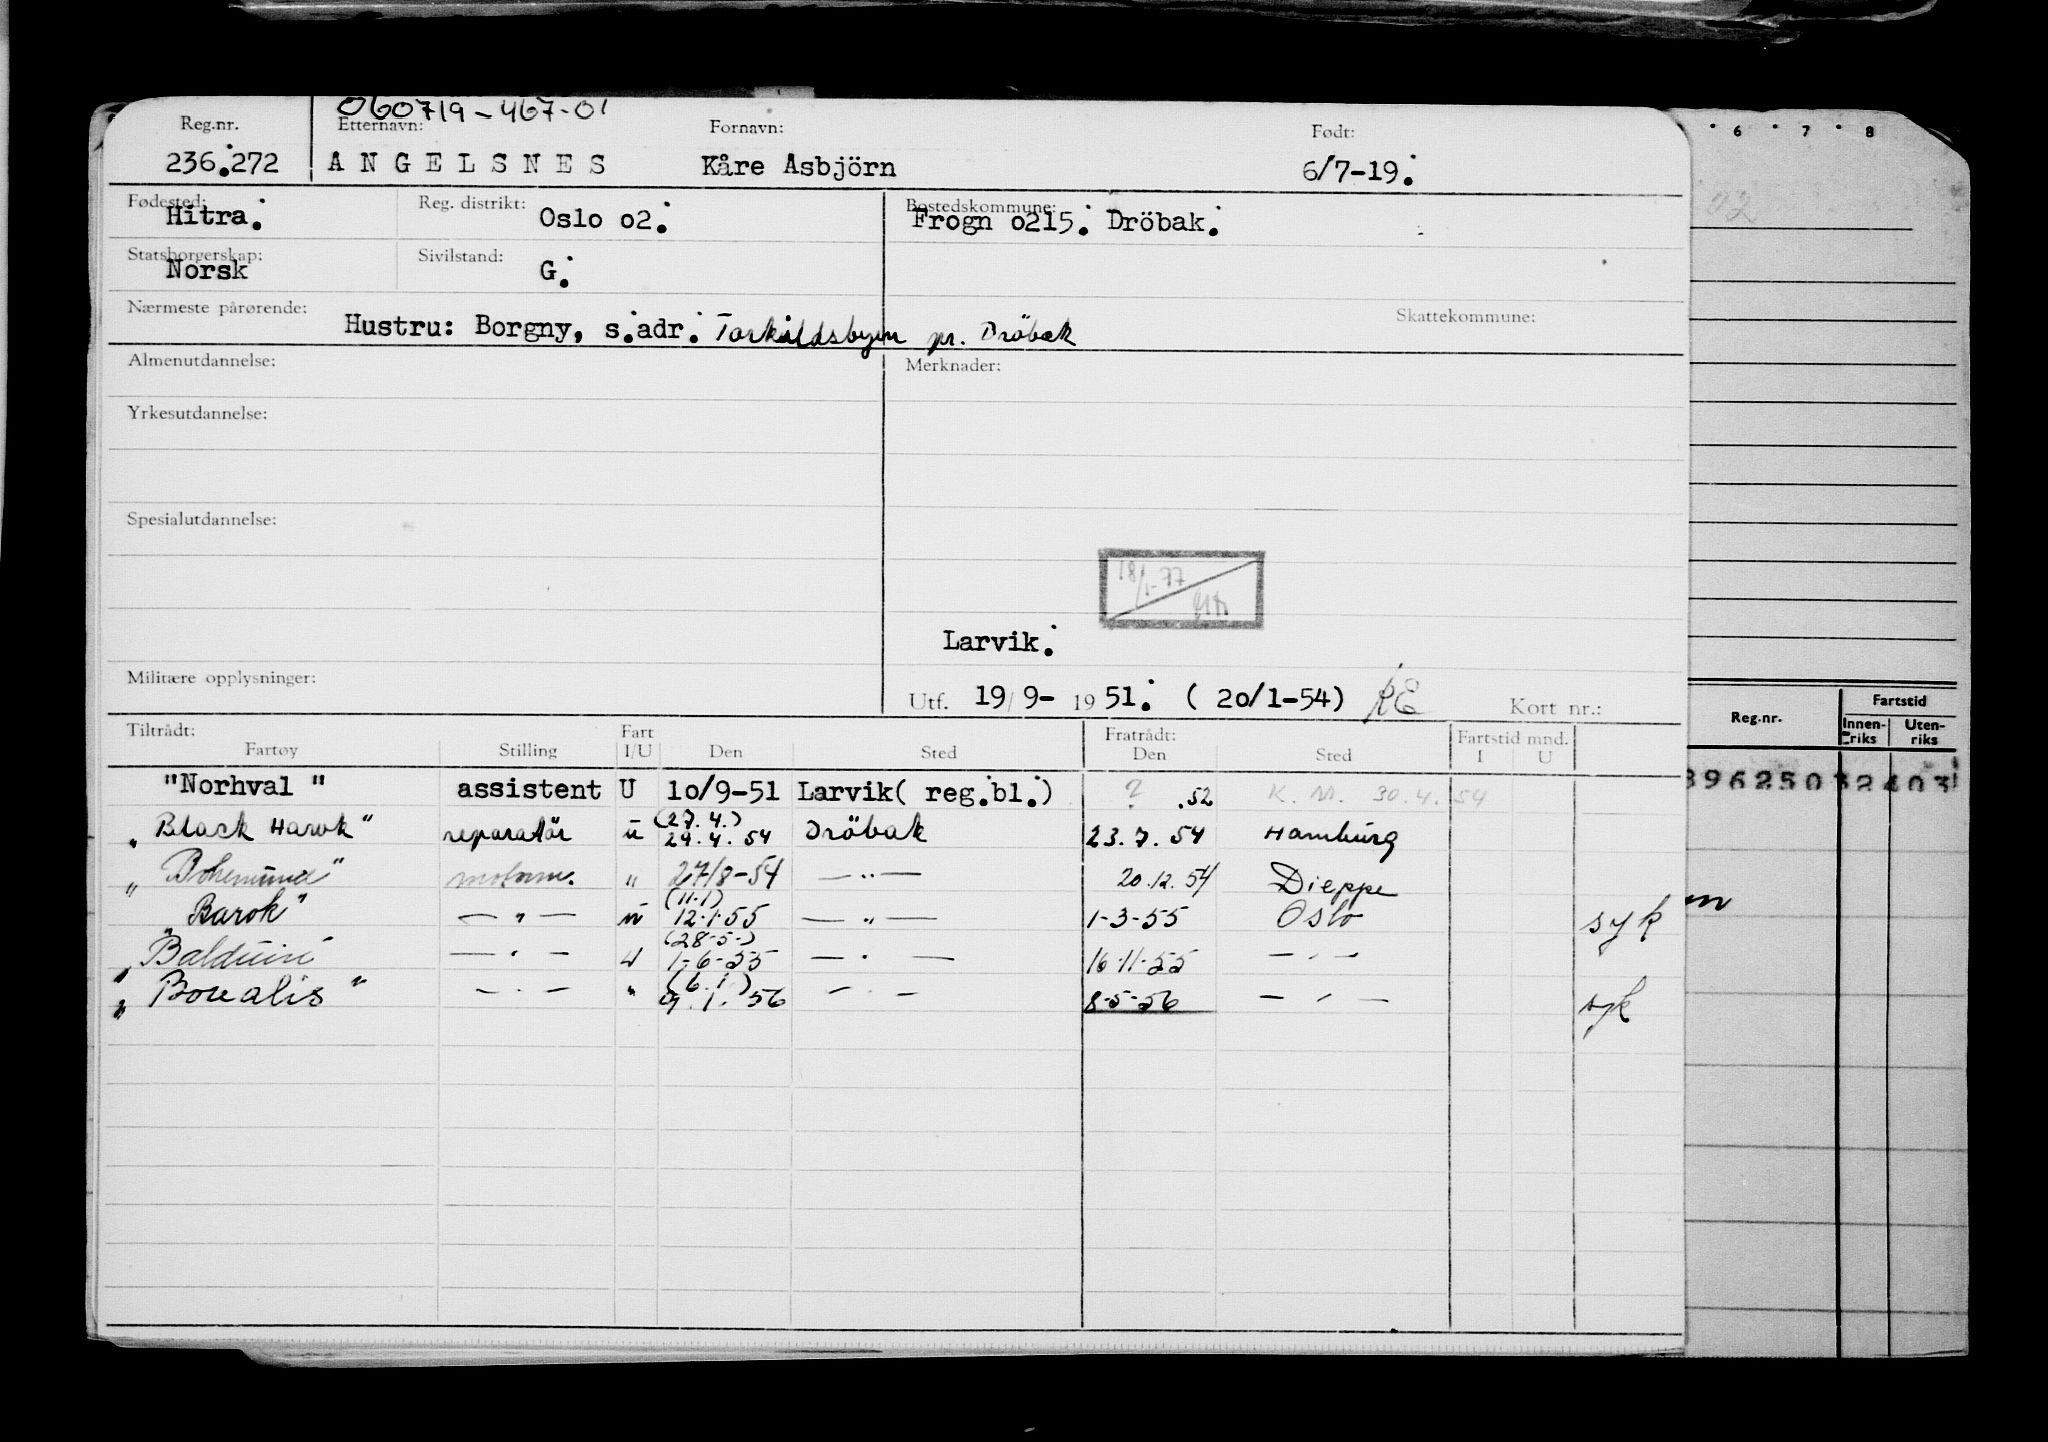 060719-467-01
Reg.nr. Etternavn: Fornavn: Født:
236.272 ANGELSNES Kåre Asbjörn 6/7-19.
Fødested: Reg. distrikt: Bostedskommune:
Hitra. Oslo o2. Frogn o215. Dröbak.
Statsborgerskap: Sivilstand:
Norsk G.
Nærmeste pårørende: Skattekommune:
Hustru: Borgny, s.adr. Torkildsbyen pr. Dröbak
Almenutdannelse: Merknader:
Yrkesutdannelse:
Spesialutdannelse:
18/1-77
Larvik.
Militære opplysninger:
Utf. 19/9- 1951. ( 20/1-54) RE Kort nr.:
Tiltrådt: Fart Fratrådt: Fartstid mnd.
Fartøy Stilling I/U Den Sted Den Sted I U
"Norhval " assistent U 1o/9-51 Larvik( reg.bl.) ? .52 K. M. 30.4.54
(27.4.)
"Black Hawk" reparatör u 29.4.54 Dröbak 23.7.54 Hamburg
"Bohemund" motorm. " 27/8-54 —"— 20.12.54 Dieppe
(11.1)
"Barok" —"— u 12.1.55 —"— 1-3-55 Oslo syk
(28-5-)
"Balduin —"— u 1-6-55 —"— 16-11-55 —"—
(6.1)
"Borealis" —"— " 9.1.56 —"— 8-5-56 —"— syk
6 7 8
02
Reg.nr. Fartstid
Innen-riks Uten-riks